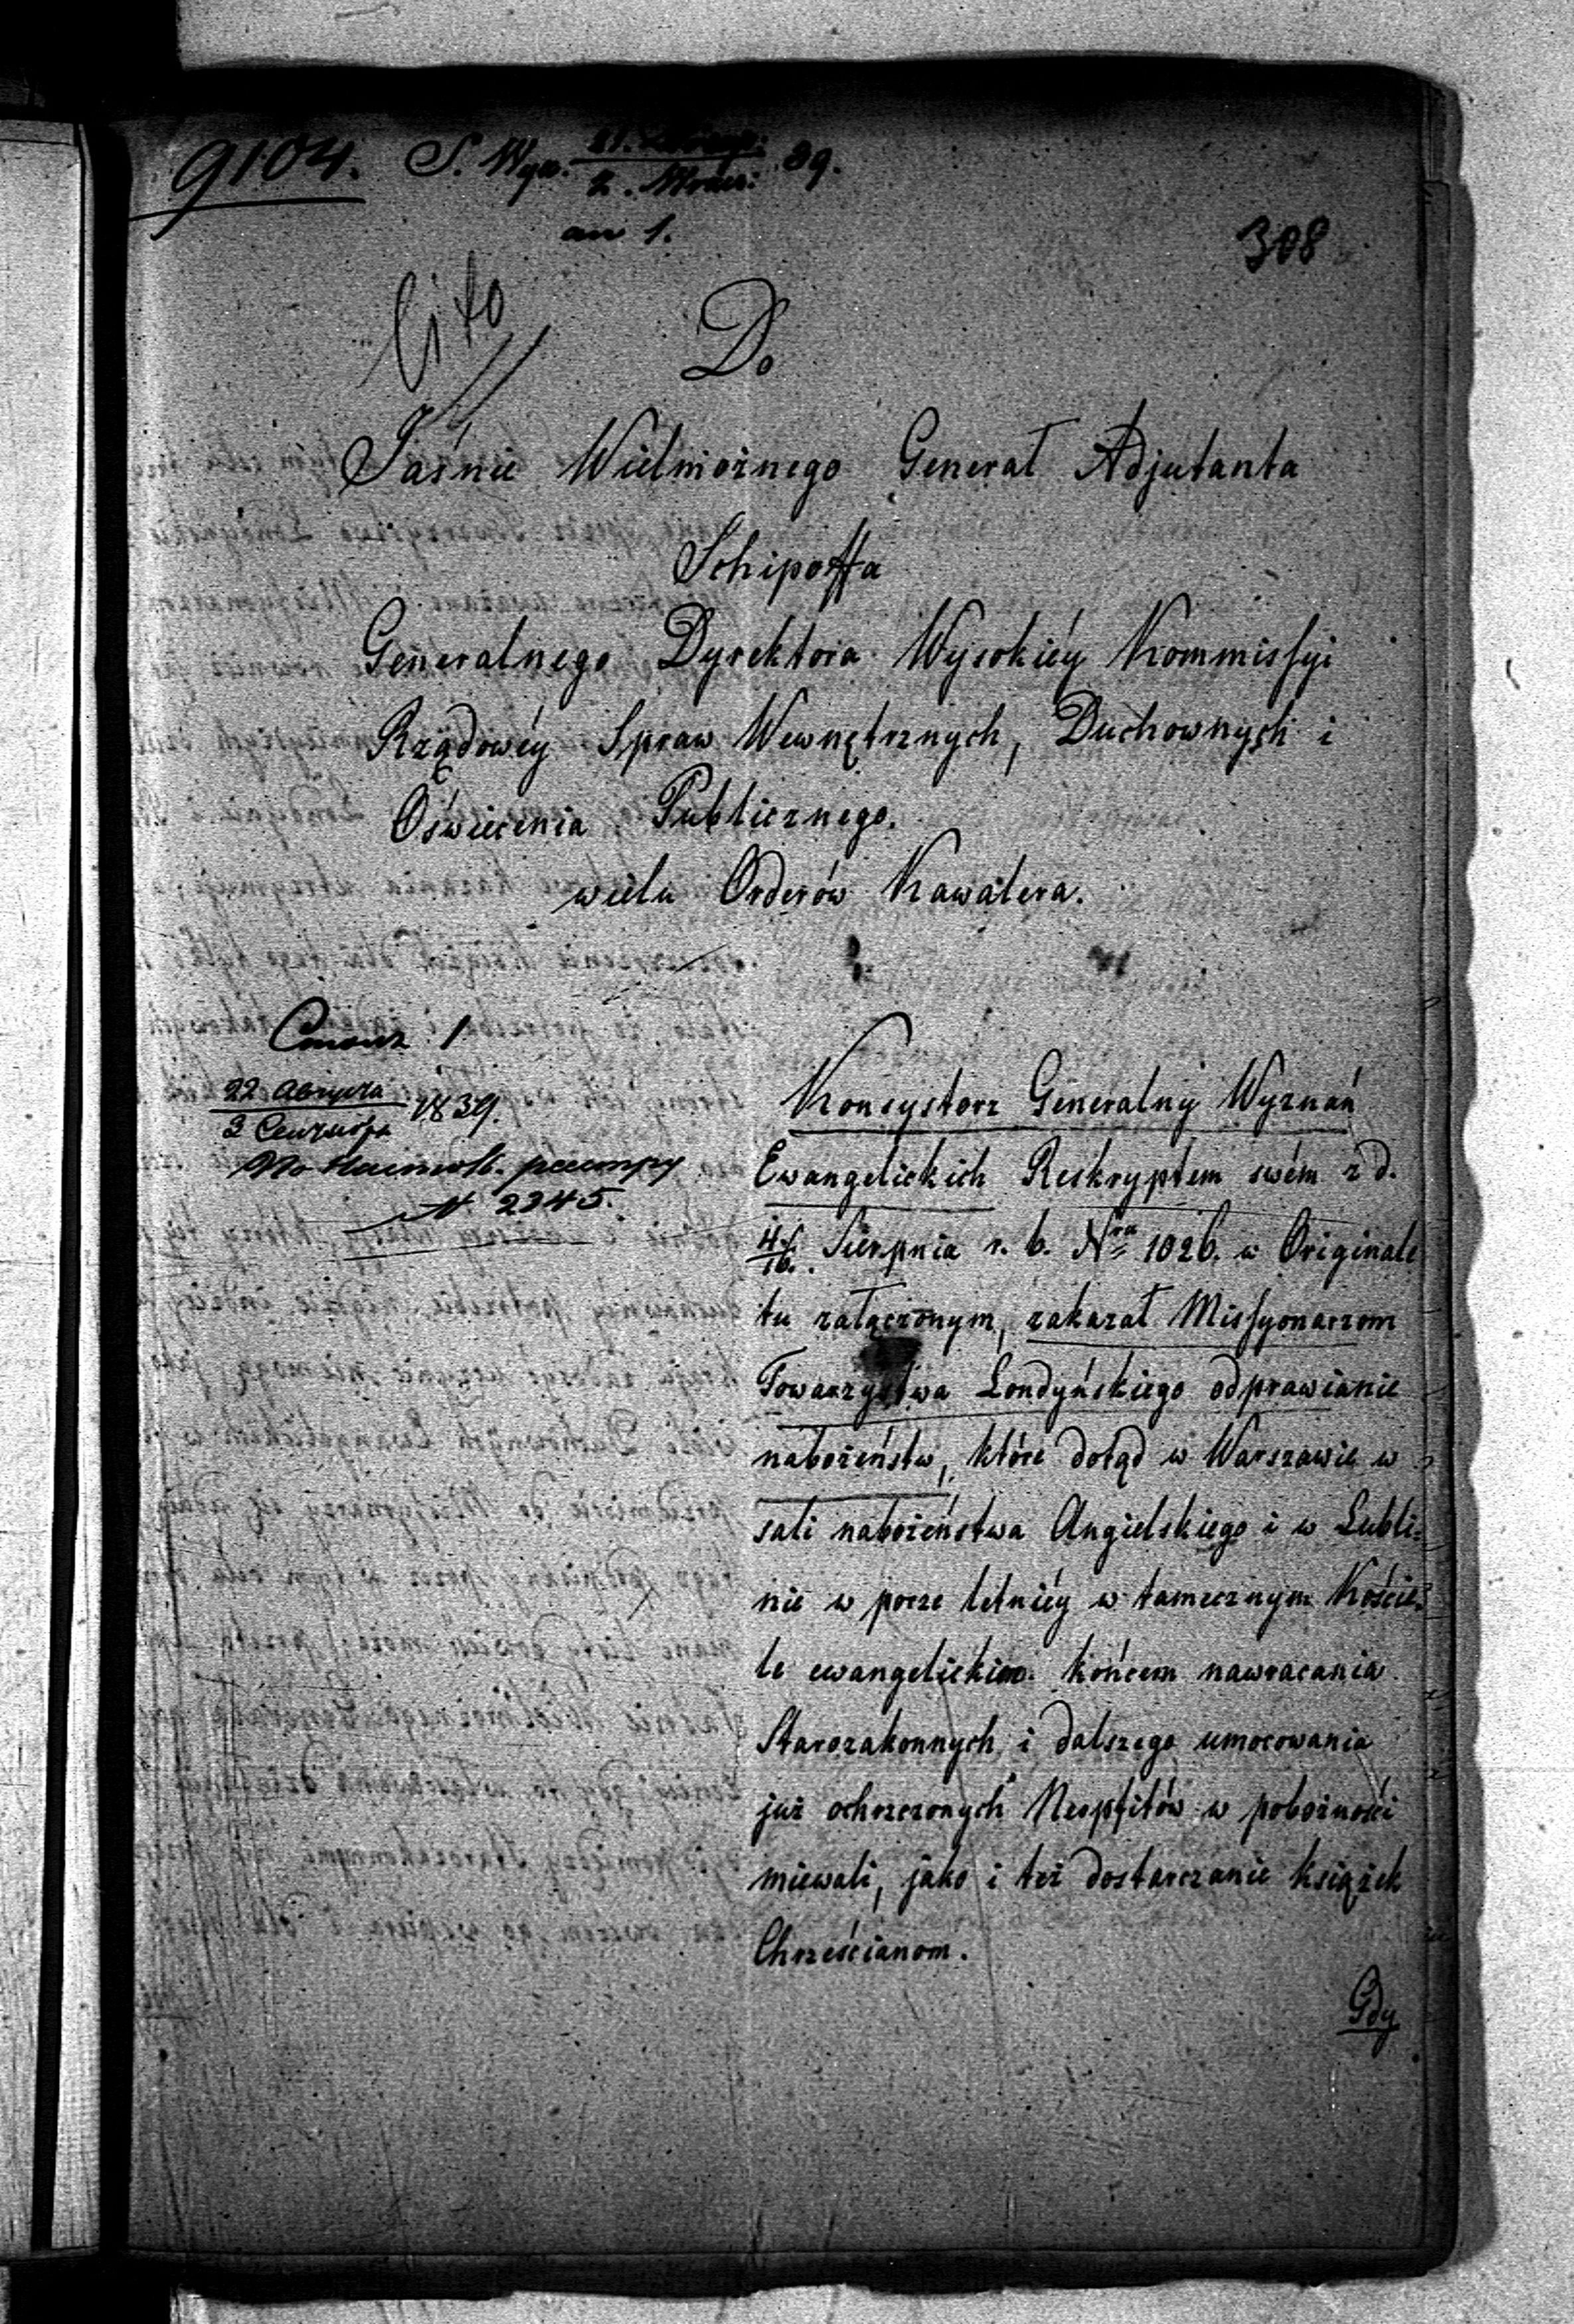 9104. S. Wyz. 21. / 2. Wrześ: 39.
an 1.
308
Cito
Do
Jaśnie Wielmożnego Generał Adjutanta
Schipoffa
Generalnego Dyrektora Wysokiéy Kommissyi
Rządowéy Spraw Wewnętrznych, Duchownych i
Oświecenia Publicznego.
wielu Orderów Kawalera.
1
22 Августа / 3 Сентября 1839.
По
№ 2245.
Konsystorz Generalny Wyznań
Ewangelickich Reskryptem swém z d.
4/16. Sierpnia r. b. Nra 1026. w Originale
tu załączonym, zakazał Missyonarzom
Towarzystwa Londyńskiego odprawianie
nabożeństw, które dotąd w Warszawie w
sali nabożeństwa Angielskiego i w Lubli=
nie w porze letniéy w tamecznym Koście=
le ewangelickim końcem nawracania
Starozakonnych i dalszego umocowania
już ochrzczonych Neophitów w pobożności
miewali, jako i też dostarczanie książek
Chrześcianom.
Gdy